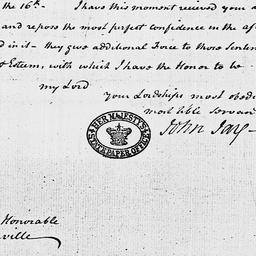 the 16th- I have this moment received your
and repose the most perfect confidence in the
d in it - they give additional Force to those Senten
Esteem, with which I have the Honor to be
my Lord
your Lordships most obed
most hble servan
John Jay
HER MAJESTY'S
STATE PAPER OFFICE
Honorable
ville